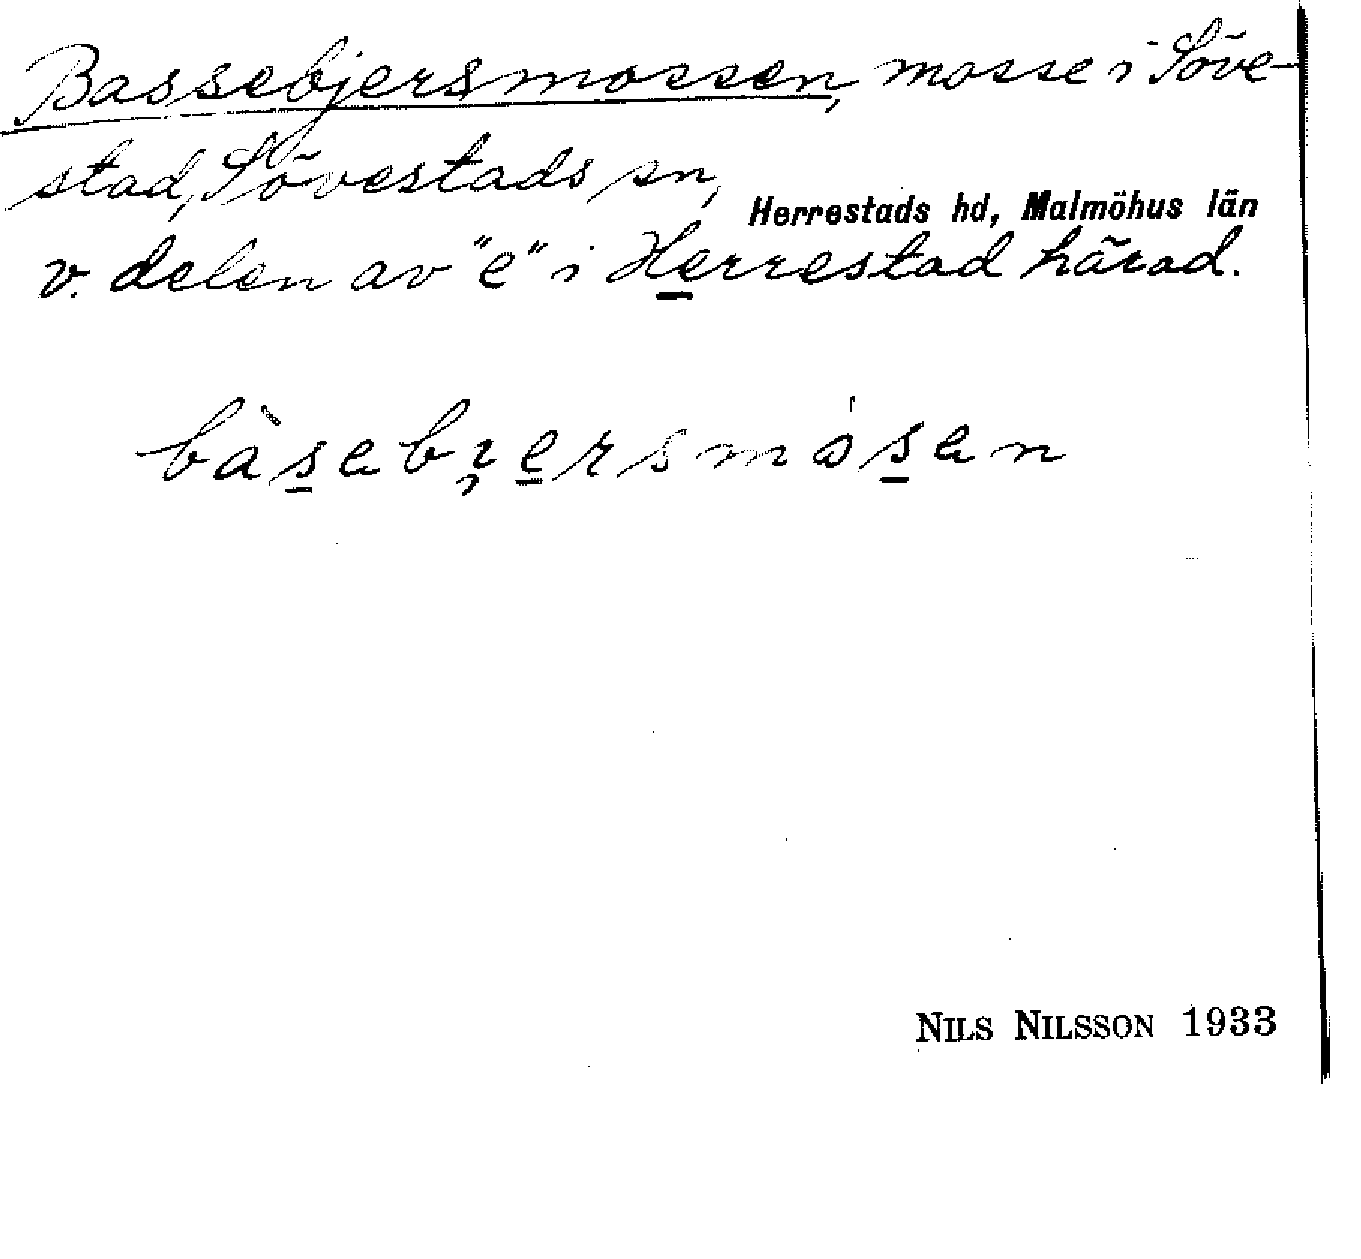 Bassebjersmossen, mosse i Söve-
stad, Sövestads sn,
Herrestads hd, Malmöhus län
v. delen av "e" i Herrestad härad.
bàsebı̯ersmósen
NILS NILSSON 1933